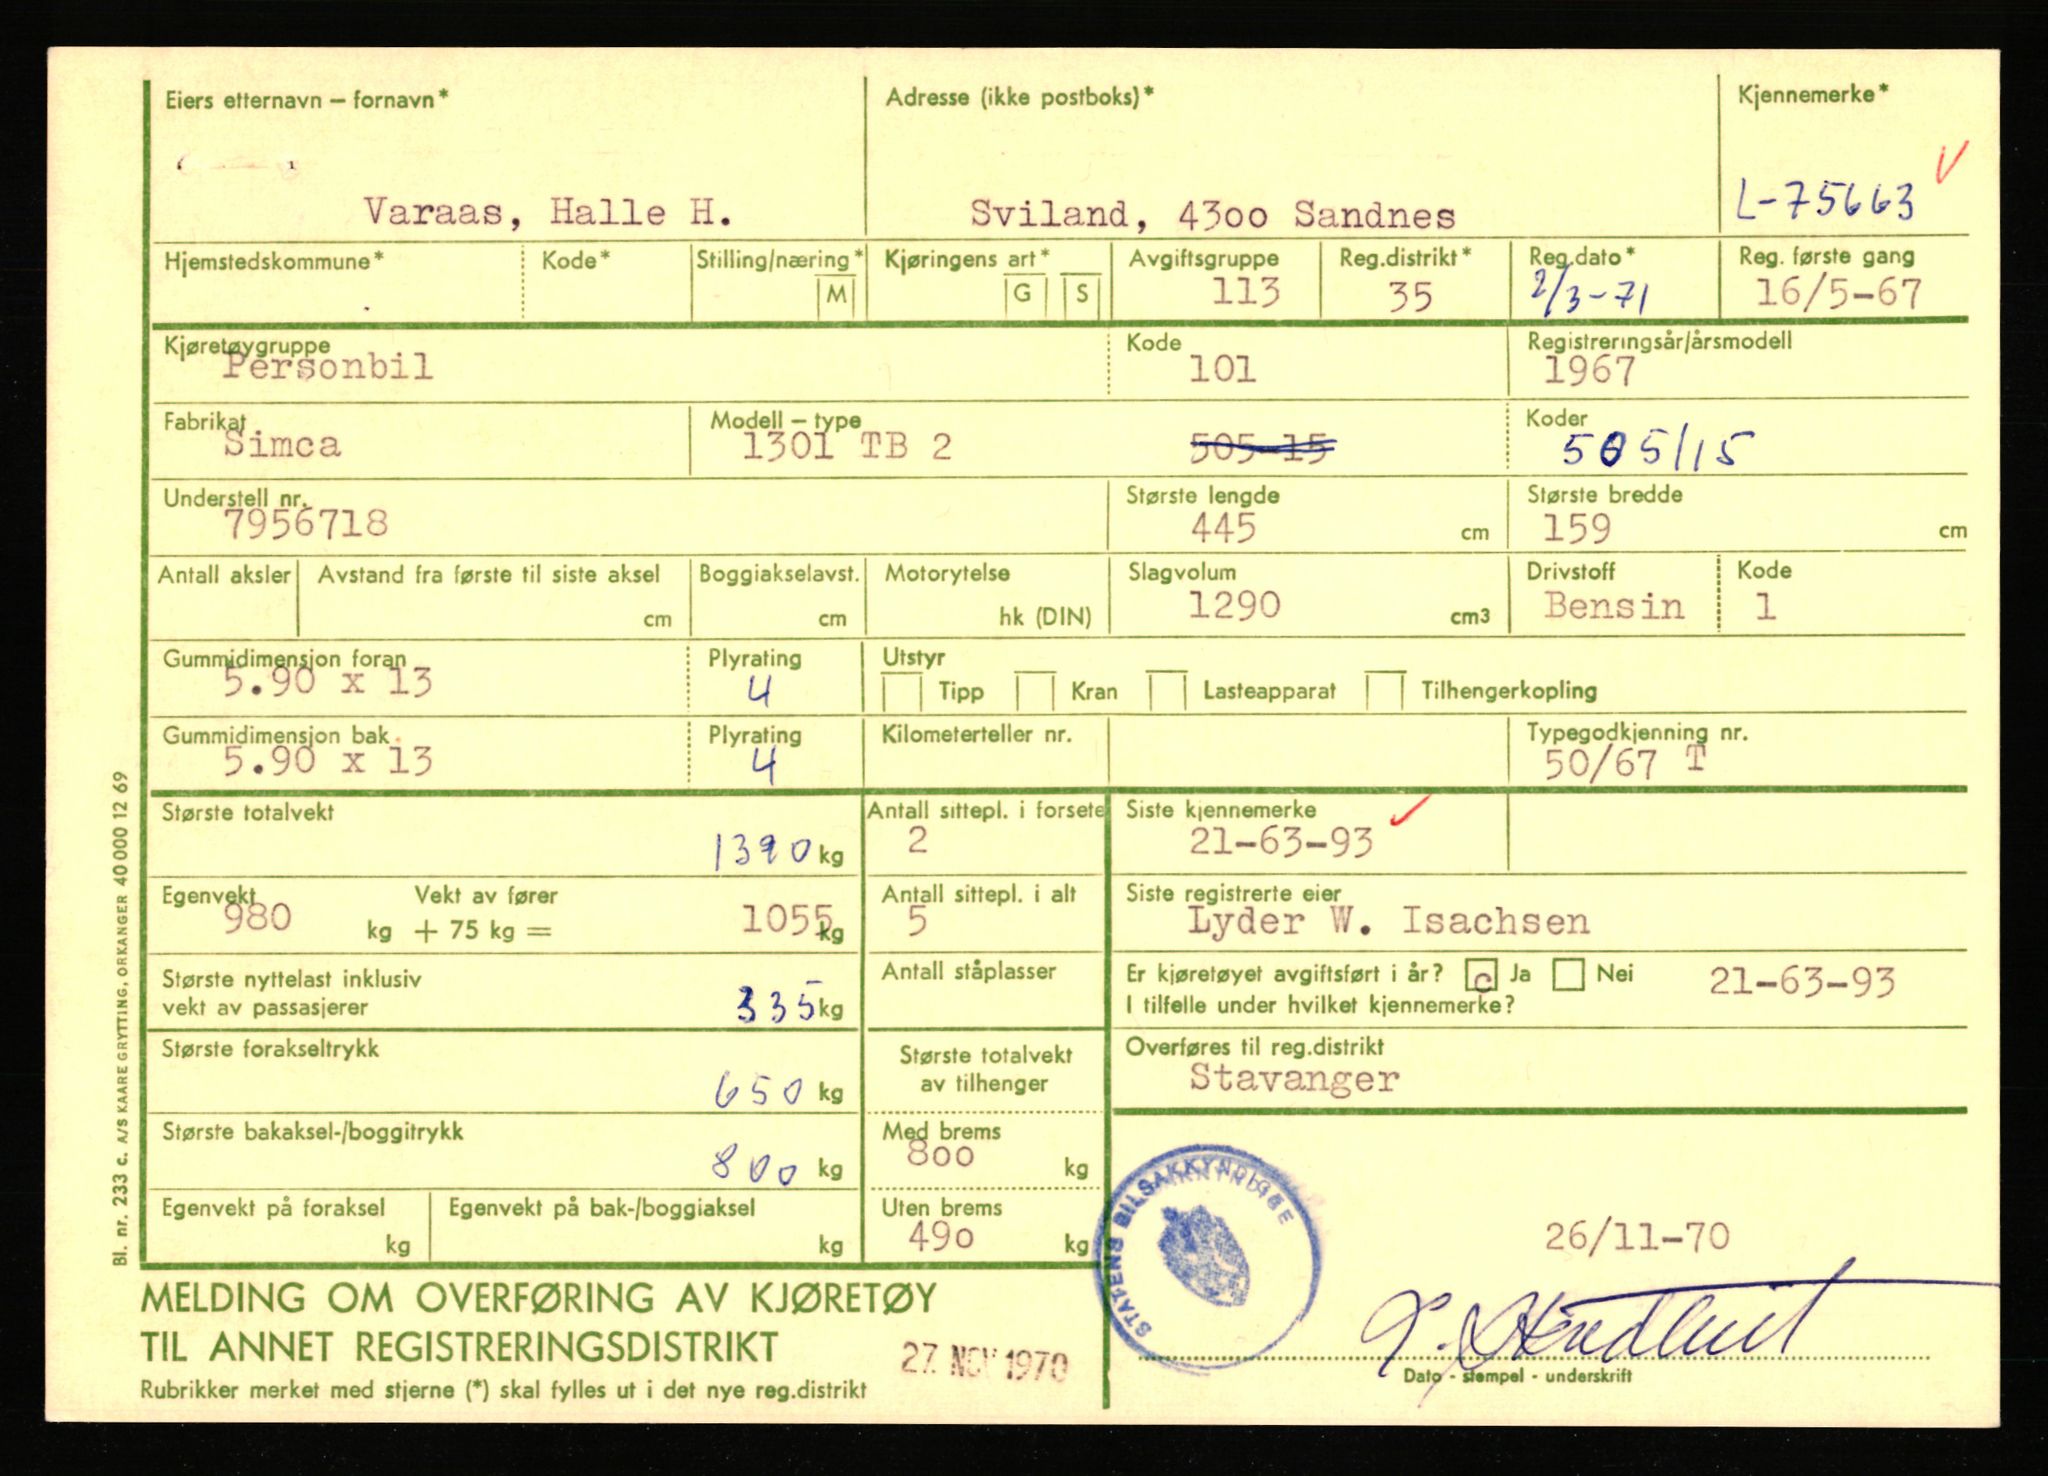 Eiers etternavn – fornavn* Adresse (ikke postboks)* Kjennemerke*
Varaas, Halle H. Sviland, 4300 Sandnes L-75663
Hjemstedskommune* Kode* Stilling/næring* M Kjøringens art* G S Avgiftsgruppe Reg.distrikt* Reg.dato* Reg. første gang
113 35 2/3-71 16/5-67
Kjøretøygruppe Kode Registreringsår/årsmodell
Personbil 101 1967
Fabrikat Modell – type Koder
Simca 1301 TB 2 505-15 505/15
Understell nr. Største lengde Største bredde
7956718 445 cm 159 cm
Antall aksler Avstand fra første til siste aksel Boggiakselavst. Motorytelse Slagvolum Drivstoff Kode
cm cm hk (DIN) 1290 cm3 Bensin 1
Gummidimensjon foran Plyrating Utstyr
5.90 x 13 4 Tipp Kran Lasteapparat Tilhengerkopling
Gummidimensjon bak Plyrating Kilometerteller nr. Typegodkjenning nr.
5.90 x 13 4 50/67 T
Største totalvekt Antall sittepl. i forsete Siste kjennemerke
1390 kg 2 21-63-93
Egenvekt Vekt av fører Antall sittepl. i alt Siste registrerte eier
980 kg + 75 kg = 1055 kg 5 Lyder W. Isachsen
Største nyttelast inklusiv Antall ståplasser Er kjøretøyet avgiftsført i år? c Ja Nei 21-63-93
vekt av passasjerer 335 kg I tilfelle under hvilket kjennemerke?
Største forakseltrykk Største totalvekt Overføres til reg.distrikt
650 kg av tilhenger Stavanger
Største bakaksel-/boggitrykk Med brems
800 kg 800 kg
Egenvekt på foraksel Egenvekt på bak-/boggiaksel Uten brems
kg kg 490 kg
STATENS BILSAKKYNDIGE
26/11-70
MELDING OM OVERFØRING AV KJØRETØY
TIL ANNET REGISTRERINGSDISTRIKT 27. NOV 1970
Rubrikker merket med stjerne (*) skal fylles ut i det nye reg.distrikt Dato - stempel - underskrift
Bl. nr. 233 c. A/S KAARE GRYTTING, ORKANGER 40 000 12 69